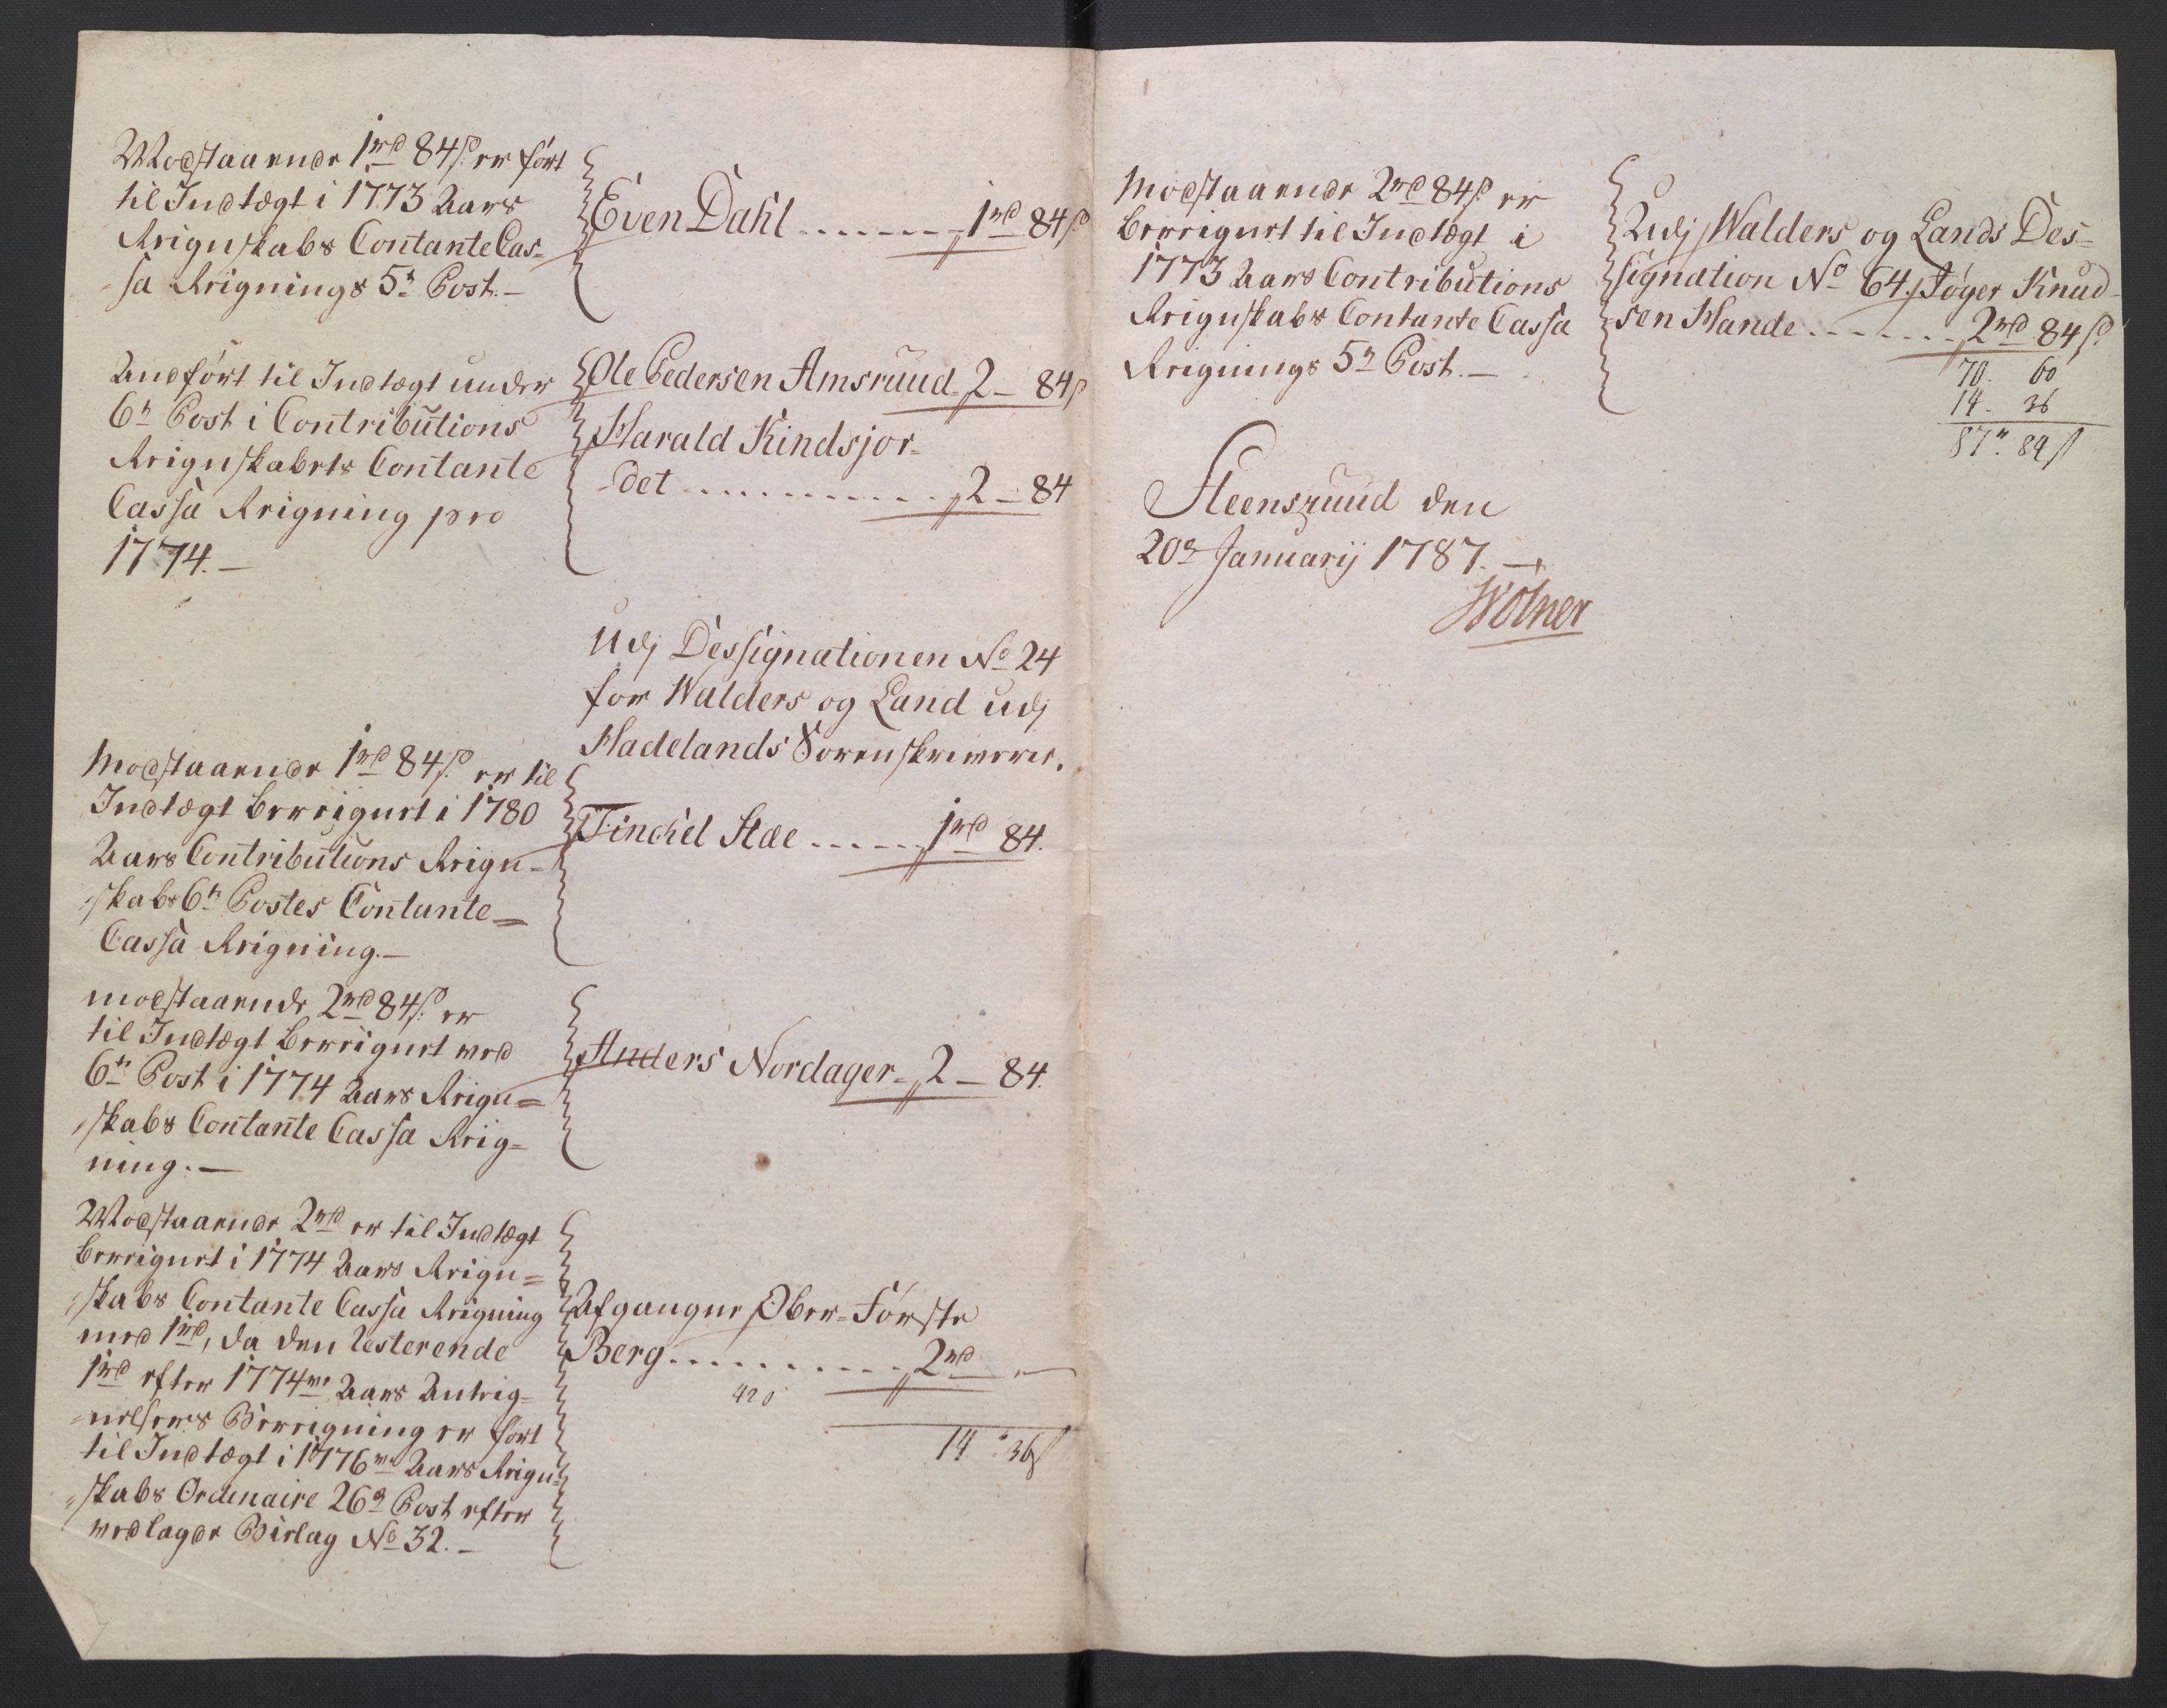 Modstaaende 1rd 84s: er ført
til Indtægt i 1773 Aars
Reignskabs Contante Cas-
sa Reignings 5te Post.-
Even Dahl ....... 1rd 84s
Anført til Indtægt under
6te Post i Contributions
Reignskabets Contante
Cassa Reigning pro
1774.-
Ole Pedersen Amsruud 2 - 84s
Harald Kindsjor-
det ............ 2 - 84
Udj Dessignationen No 24
for Walders og Land udj
Hadelands Sorenskriverie.
Modstaaende 1rd 84s: er til
Indtægt bereignet i 1780
Aars Contributions Reign-
skabs 6te Postes Contante-
Cassa Reigning.-
Tinchel Stae ...... 1rd 84.
modstaaende 2rd 84s: er
til Indtægt bereignet ved
6te Post i 1774 Aars Reign-
skabs Contante Cassa Reig-
ning.-
Anders Nordager - 2 - 84.
Modstaaende 2rd er til Indtægt
bereignet i 1774 Aars Reign=
skabs Contante Cassa Reigning
med 1rd, da den resterende
1rd efter 1774ve Aars Anteig-
nelsers Bereigning er ført
til Indtægt i 1776ve Aars Reign-
skabs Ordinaire 26de Post efter
vedlagde Bielag No 32.-
Afgangne Ober-Førster
Berg .......... 2rd -
420
14 " 36s
Modstaaende 2rd 84s er
bereignet til Indtægt i
1773 Aars Contributions
Reignskabs Contante Cassa
Reignings 5te Post.-
Udj Walders og Lands Des-
signation No 64. Tøger Knud-
sen Hande ....... 2rd 84s
70. 60
14 - 36
87 " 84s
Steensruud den
20de Januarij 1787.-
Wølner